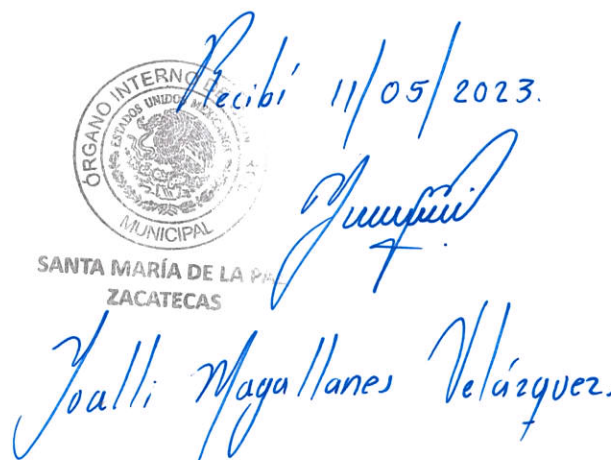 Recibí 11/05/2023.
ÓRGANO INTERNO DE
ESTADOS UNIDOS MEXICANOS
MUNICIPAL
SANTA MARÍA DE LA PAZ
ZACATECAS
Yoalli Magallanes Velázquez.